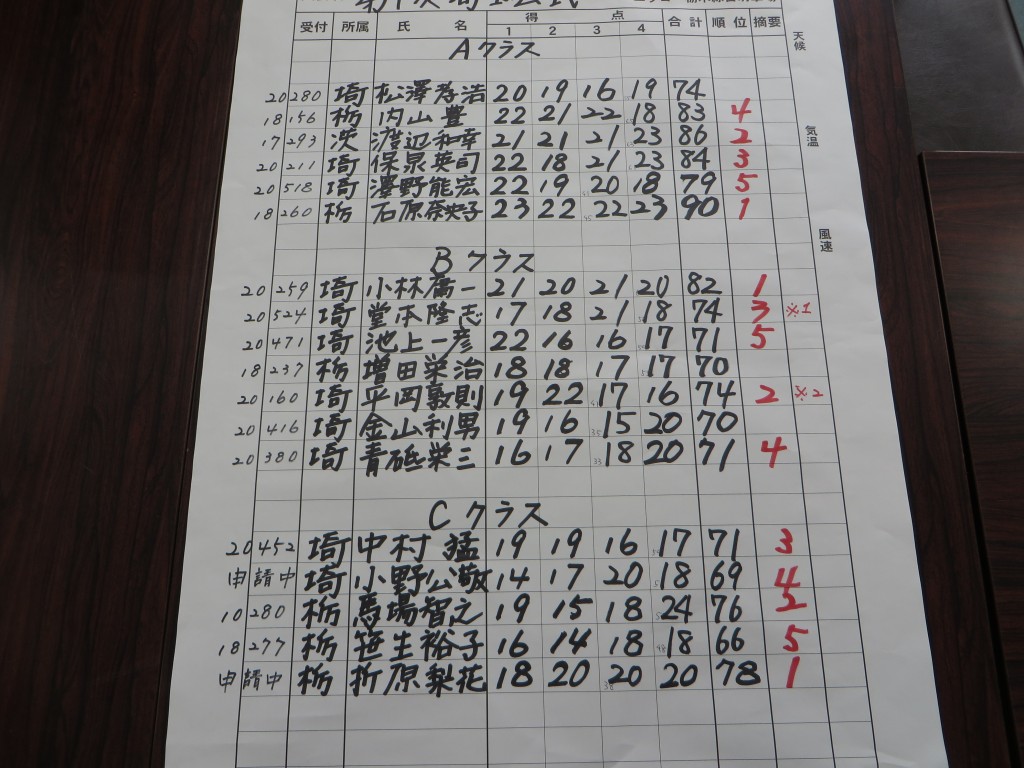 受付 所属 氏名 得点 1 2 3 4 合計 順位 摘要
天候
気温
風速
Aクラス
20 280 埼 松澤孝浩 20 19 16 19 74
18 156 栃 内山豊 22 21 22 18 83 4
17 293 茨 渡辺和幸 21 21 21 23 86 2
20 211 埼 保泉英司 22 18 21 23 84 3
20 518 埼 澤野能宏 22 19 20 18 79 5
18 260 栃 石原奈央子 23 22 22 23 90 1
Bクラス
20 259 埼 小林廣一 21 20 21 20 82 1
20 524 埼 堂本隆志 17 18 21 18 74 3 ※1
20 471 埼 池上一彦 22 16 16 17 71 5
18 237 栃 増田栄治 18 18 17 17 70
20 160 埼 平岡敦則 19 22 17 16 74 2 ※2
20 416 埼 金山利男 19 16 15 20 70
20 380 埼 青砥栄三 16 17 18 20 71 4
Cクラス
20 452 埼 中村猛 19 19 16 17 71 3
申請中 埼 小野公敬 14 17 20 18 69 4
10 280 栃 馬場智之 19 15 18 24 76 2
18 277 栃 笹生裕子 16 14 18 18 66 5
申請中 栃 折原梨花 18 20 20 20 78 1